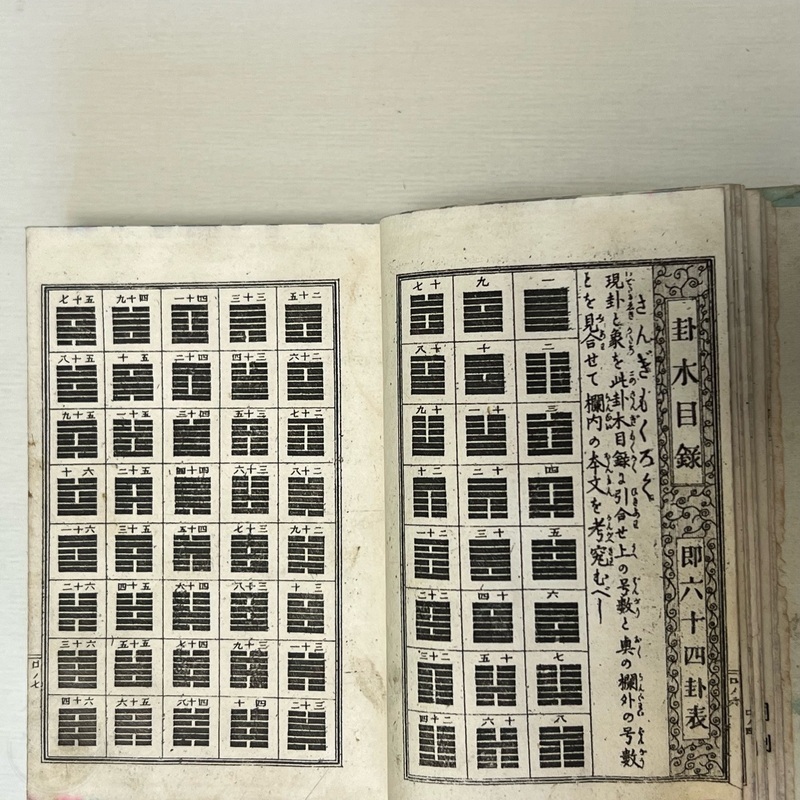 卦木目録
即六十四卦表
さんぎもくろく
現卦と象を此卦木目録に引合せ上の号数と奥の欄外の号数
とを見合せて欄内の本文を考究むべし
一
二
三
四
五
六
七
八
九
十
十一
十二
十三
十四
十五
十六
十七
十八
十九
二十
二十一
二十二
二十三
二十四
ロノ六
二十五
二十六
二十七
二十八
二十九
三十
三十一
三十二
三十三
三十四
三十五
三十六
三十七
三十八
三十九
四十
四十一
四十二
四十三
四十四
四十五
四十六
四十七
四十八
四十九
五十
五十一
五十二
五十三
五十四
五十五
五十六
五十七
五十八
五十九
六十
六十一
六十二
六十三
六十四
ロノ七